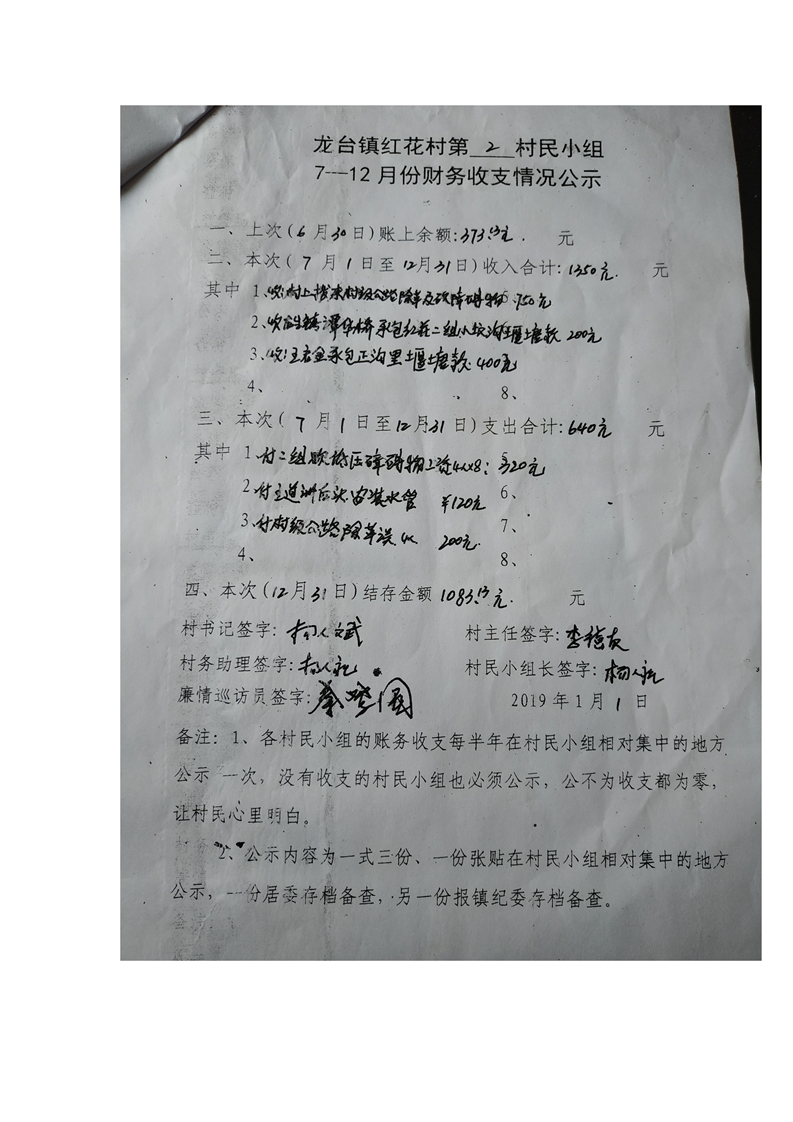 龙台镇红花村第 2 村民小组
7---12月份财务收支情况公示
一、上次(6月30日)账上余额:373.13元. 元
二、本次(7月1日至12月31日)收入合计:1350元. 元
其中 1、收村上拨来村级公路除草及砍障碍物 750元
2、收 镇潭 桥承包红花二组小 沟堰塘款 200元
3、收王 金承包正沟里堰塘款 400元
4、 8、
三、本次(7月1日至12月31日)支出合计:640元 元
其中 1、付二组砍 压障碍物工资4x×8: 320元
2、付王道洲后头安装水管 ¥120元 6、
3、付村级公路除草误 200元. 7、
4、 8、
四、本次(12月31日)结存金额1083.13元. 元
村书记签字:杨人斌 村主任签字:李 友
村务助理签字:杨人 村民小组长签字:杨人
廉情巡访员签字: 国 2019年1月1日
备注:1、各村民小组的账务收支每半年在村民小组相对集中的地方
公示一次,没有收支的村民小组也必须公示,公不为收支都为零,
让村民心里明白。
2、公示内容为一式三份、一份张贴在村民小组相对集中的地方
公示,一份居委存档备查,另一份报镇纪委存档备查。